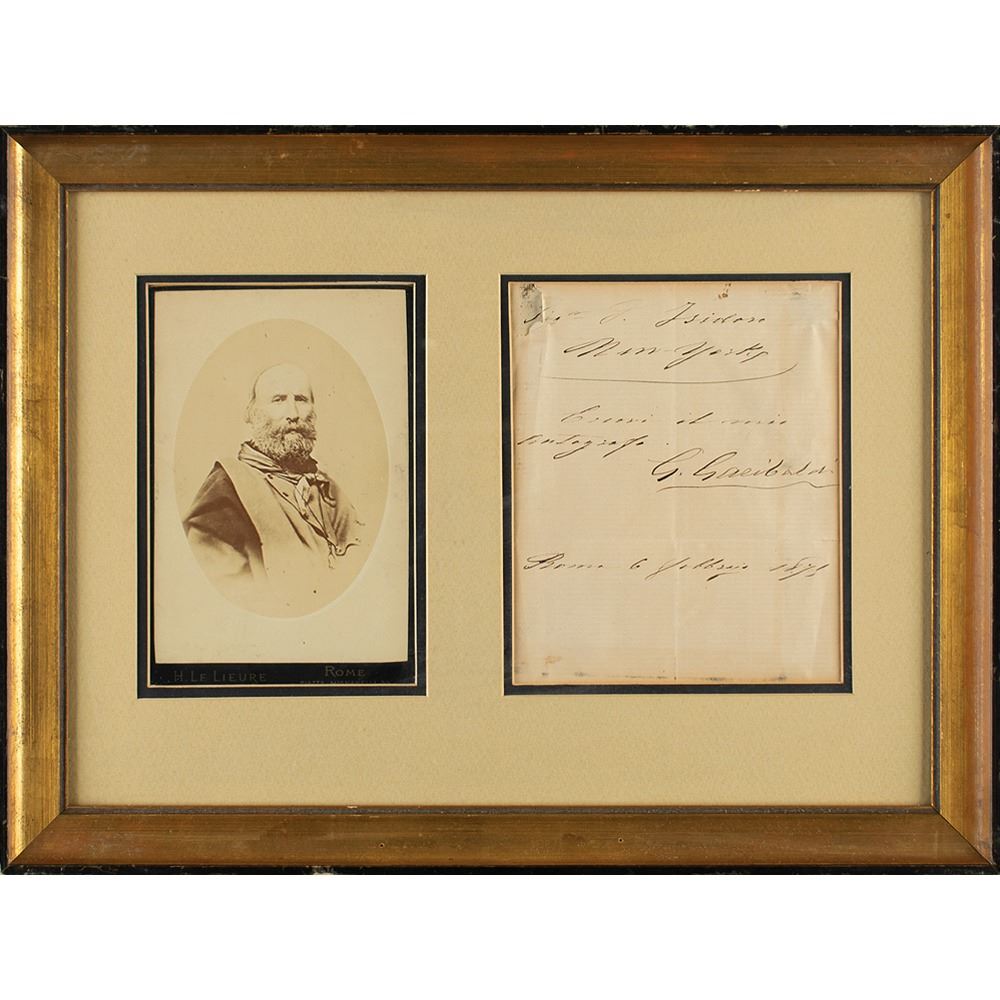 H. LE LIEURE ROME
J. Isidoro
New-York
Eccovi il mio
autografo.
G. Garibaldi
Roma 6 febbraio 1875